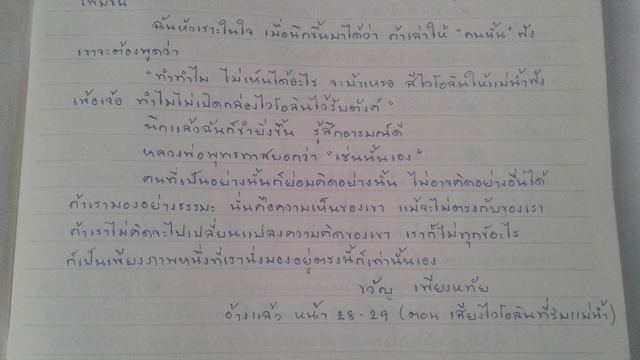 เพิ่มขึ้น
ฉันหัวเราะในใจ เมื่อนึกขึ้นมาได้ว่า ถ้าเล่าให้ "คนนั้น" ฟัง
เขาจะต้องพูดว่า
"ทำทำไม ไม่เห็นได้อะไร จะบ้าเหรอ สีไวโอลินให้แม่น้ำฟัง
เพ้อเจ้อ ทำไมไม่เปิดกล่องไวโอลินไว้รับตังค์"
นึกแล้วฉันก็ขำยิ่งขึ้น รู้สึกอารมณ์ดี
หลวงพ่อพุทธทาสบอกว่า "เช่นนั้นเอง"
คนที่เป็นอย่างนั้นก็ย่อมคิดอย่างนั้น ไม่อาจคิดอย่างอื่นได้
ถ้าเรามองอย่างธรรมะ นั่นคือความเห็นของเขา แม้จะไม่ตรงกับของเรา
ถ้าเราไม่คิดจะไปเปลี่ยนแปลงความคิดของเขา เราก็ไม่ทุกข์อะไร
ก็เป็นเพียงภาพหนึ่งที่เรานั่งมองอยู่ตรงนี้ก็เท่านั้นเอง
ขวัญ เพียงหทัย
อ้างแล้ว หน้า 28-29 (ตอน เสียงไวโอลินที่ริมแม่น้ำ)